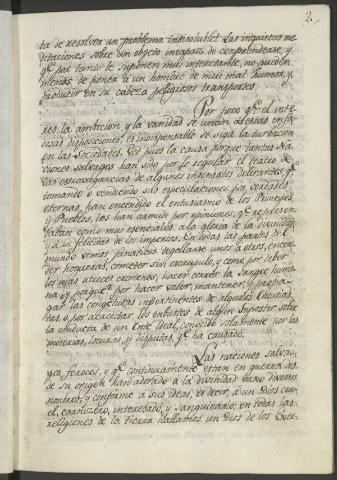 2.
ta de resolver un problema indisoluble? Las inquietas me
ditaciones sobre un objeto incapaz de conprenderse, y
qe. por tanto le suponen muy interesante, no pueden
menos de poner a un hombre de muy mal humor, y
producir en su cabeza peligrosos transportes.
Por poco qe. el inte
res la ambicion y la vanidad se unan a estas enfa
dosas disposiciones, es indispensable se siga la turbacion
en las Sociedades. Ved pues la causa porque tantas Na
ciones salvages han sido por lo regular el teatro de
las extravagancias de algunos insensatos delirantes, qe.
tomando o vendiendo sus especulaciones por verdades
eternas, han encendido el entusiasmo de los Principes,
y Pueblos, los han armado por opiniones, qe. represen
taban como muy esenciales a la gloria de la Divinidad,
y a la felicidad de los imperios. En todas las partes del
mundo vemos fanaticos degollarse unos a otros, encen
der hogueras, cometer sin escrupulo, y como por deber
los mas atroces crimenes, hacer correr la Sangre huma
na ¿y porque? por hacer valer, mantener, y propa
gar las congeturas inpertinentes de algunos Entusias
tas, o por acreditar los enbustes de algun Impostor sobre
la conducta de un Ente Ideal, conocido solamente por las
miserias, locuras, y disputas, qe. ha causado.
Las naciones salva
ges, feroces, y qe. continuamente estan en guerra des
de su origen han adorado a la divinidad bajo diversos
nombres, y conforme a sus ideas, es decir, a un Dios cru
el, carnizero, interesado, y sanguinario; en todas las
religiones de la tierra hallamos un Dios de los Exer-